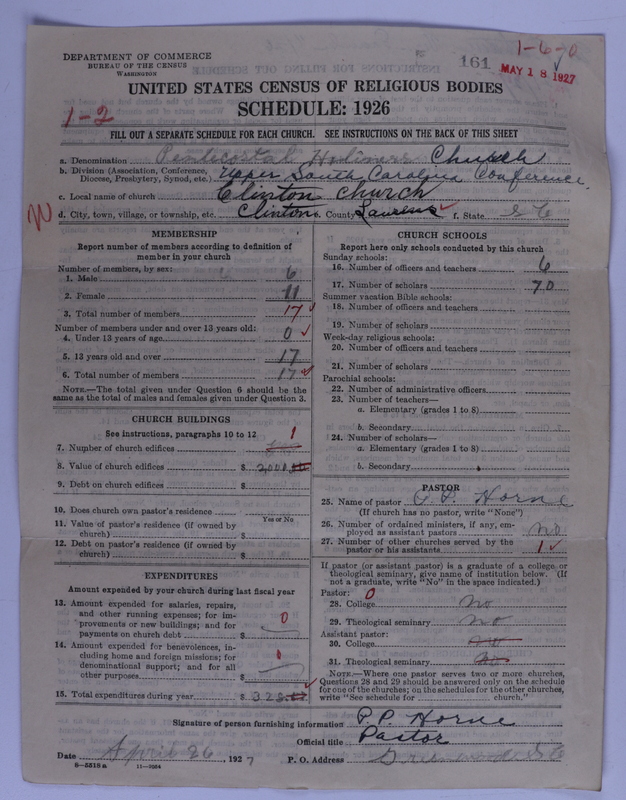 DEPARTMENT OF COMMERCE
BUREAU OF THE CENSUS
WASHINGTON
161
1-6-0
MAY 18 1927
UNITED STATES CENSUS OF RELIGIOUS BODIES
1-2
SCHEDULE: 1926
FILL OUT A SEPARATE SCHEDULE FOR EACH CHURCH. SEE INSTRUCTIONS ON THE BACK OF THIS SHEET
a. Denomination Pentecostal Holiness Church
b. Division (Association, Conference, Diocese, Presbytery, Synod, etc.) Upper South Carolina Conference
c. Local name of church Clinton Church
d. City, town, village, or township, etc. Clinton e. County Laurens f. State S C
MEMBERSHIP
Report number of members according to definition of member in your church
Number of members, by sex:
1. Male 6
2. Female 11
3. Total number of members 17
Number of members under and over 13 years old:
4. Under 13 years of age 0
5. 13 years old and over 17
6. Total number of members 17
NOTE.—The total given under Question 6 should be the same as the total of males and females given under Question 3.
CHURCH BUILDINGS
See instructions, paragraphs 10 to 12
7. Number of church edifices 1
8. Value of church edifices $ 2,000.00
9. Debt on church edifices $
10. Does church own pastor's residence
Yes or No
11. Value of pastor's residence (if owned by church) $
12. Debt on pastor's residence (if owned by church) $
EXPENDITURES
Amount expended by your church during last fiscal year
13. Amount expended for salaries, repairs, and other running expenses; for improvements or new buildings; and for payments on church debt $ 0
14. Amount expended for benevolences, including home and foreign missions; for denominational support; and for all other purposes $
15. Total expenditures during year $
CHURCH SCHOOLS
Report here only schools conducted by this church
Sunday schools:
16. Number of officers and teachers 6
17. Number of scholars 70
Summer vacation Bible schools:
18. Number of officers and teachers
19. Number of scholars
Week-day religious schools:
20. Number of officers and teachers
21. Number of scholars
Parochial schools:
22. Number of administrative officers
23. Number of teachers—
a. Elementary (grades 1 to 8)
b. Secondary
24. Number of scholars—
a. Elementary (grades 1 to 8)
b. Secondary
PASTOR
25. Name of pastor P. P. Horne
(If church has no pastor, write "None")
26. Number of ordained ministers, if any, employed as assistant pastors No
27. Number of other churches served by the pastor or his assistants 1
If pastor (or assistant pastor) is a graduate of a college or theological seminary, give name of institution below. (If not a graduate, write "No" in the space indicated.)
Pastor: 0
28. College No
29. Theological seminary No
Assistant pastor:
30. College No
31. Theological seminary No
NOTE.—Where one pastor serves two or more churches, Questions 28 and 29 should be answered only on the schedule for one of the churches; on the schedules for the other churches, write "See schedule for church."
Signature of person furnishing information P.P. Horne
Official title Pastor
Date April 26, 1927 P. O. Address Greenwood S C